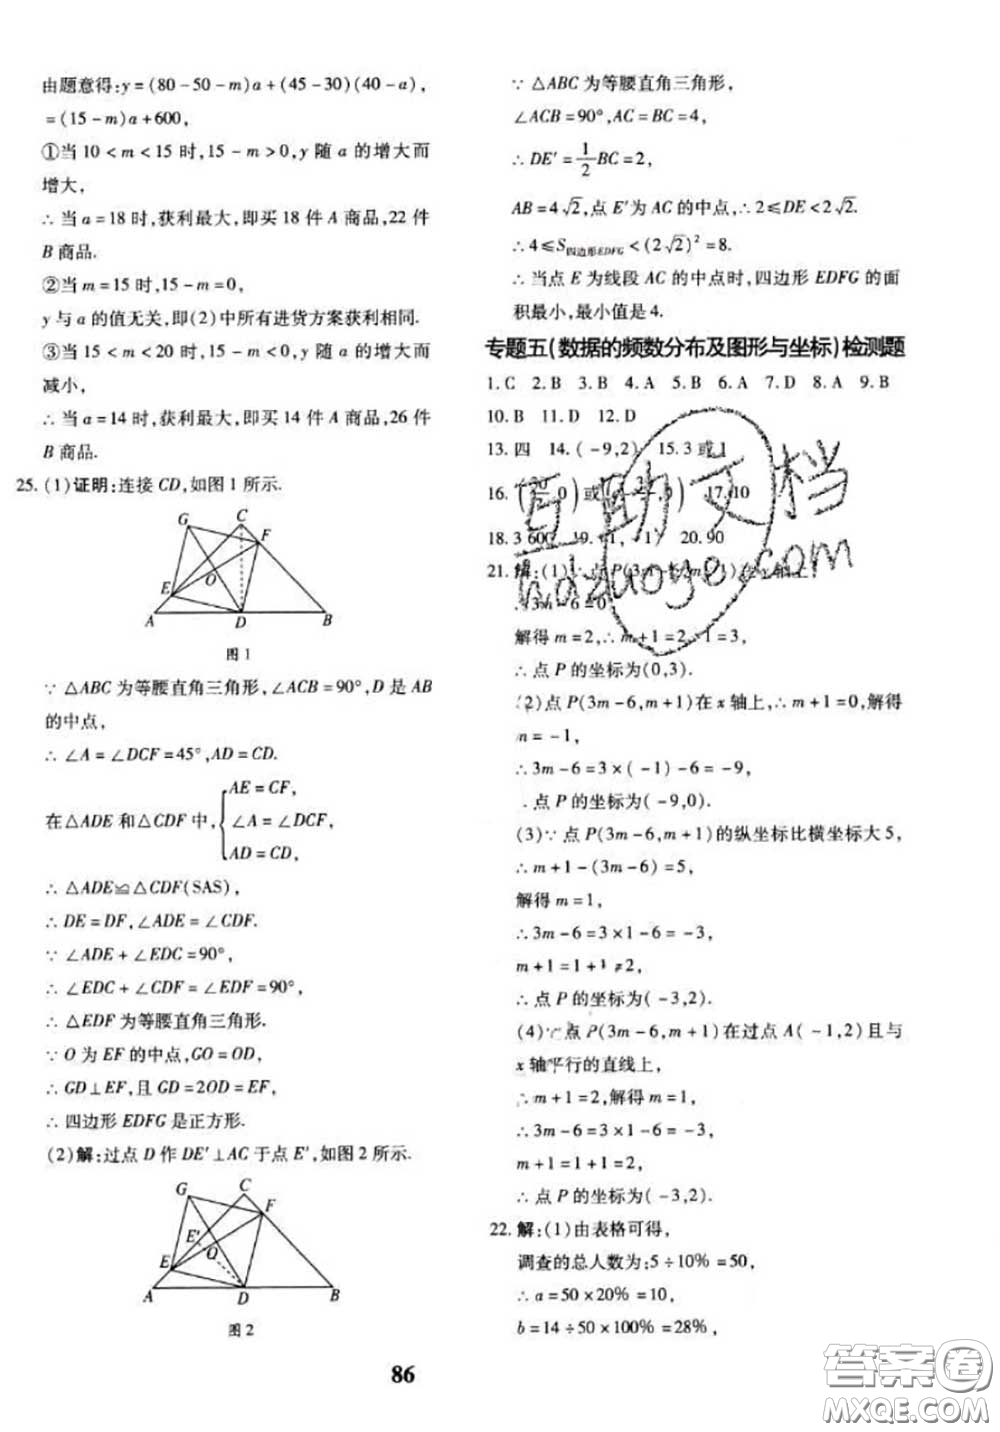 由题意得:y=(80-50-m)a+(45-30)(40-a),
=(15-m)a+600,
①当10<m<15时,15-m>0,y随a的增大而
增大,
∴当a=18时,获利最大,即买18件A商品,22件
B商品.
②当m=15时,15-m=0,
y与a的值无关,即(2)中所有进货方案获利相同.
③当15<m<20时,15-m<0,y随a的增大而
减小,
∴当a=14时,获利最大,即买14件A商品,26件
B商品.
25.(1)证明:连接CD,如图1所示.
G C F
O
E
A D B
图1
∵△ABC为等腰直角三角形,∠ACB=90°,D是AB
的中点,
∴∠A=∠DCF=45°,AD=CD.
在△ADE和△CDF中,
AE=CF,
∠A=∠DCF,
AD=CD,
∴△ADE≌△CDF(SAS),
∴DE=DF,∠ADE=∠CDF.
∵∠ADE+∠EDC=90°,
∴∠EDC+∠CDF=∠EDF=90°,
∴△EDF为等腰直角三角形.
∵O为EF的中点,GO=OD,
∴GD⊥EF,且GD=2OD=EF,
∴四边形EDFG是正方形.
(2)解:过点D作DE′⊥AC于点E′,如图2所示.
G C F
E′ O
E
A D B
图2
∵△ABC为等腰直角三角形,
∠ACB=90°,AC=BC=4,
∴DE′=1/2BC=2,
AB=4√2,点E′为AC的中点,∴2≤DE<2√2.
∴4≤S四边形EDFG<(2√2)²=8.
∴当点E为线段AC的中点时,四边形EDFG的面
积最小,最小值是4.
专题五(数据的频数分布及图形与坐标)检测题
1.C 2.B 3.B 4.A 5.B 6.A 7.D 8.A 9.B
10.B 11.D 12.D
13.四 14.(-9,2) 15.3或1
16. 或 17.10
18.3 600 19. 20.90
21.解:(1)∵点P(3m-6,m+1)在y轴上,
∴3m-6=0,
解得m=2,∴m+1=2+1=3,
∴点P的坐标为(0,3).
(2)点P(3m-6,m+1)在x轴上,∴m+1=0,解得
m=-1,
∴3m-6=3×(-1)-6=-9,
∴点P的坐标为(-9,0).
(3)∵点P(3m-6,m+1)的纵坐标比横坐标大5,
∴m+1-(3m-6)=5,
解得m=1,
∴3m-6=3×1-6=-3,
m+1=1+1=2,
∴点P的坐标为(-3,2).
(4)∵点P(3m-6,m+1)在过点A(-1,2)且与
x轴平行的直线上,
∴m+1=2,解得m=1,
∴3m-6=3×1-6=-3,
m+1=1+1=2,
∴点P的坐标为(-3,2).
22.解:(1)由表格可得,
调查的总人数为:5÷10%=50,
∴a=50×20%=10,
b=14÷50×100%=28%,
86
互助文档
hazuoye.com
答案卷
MXQE.COM